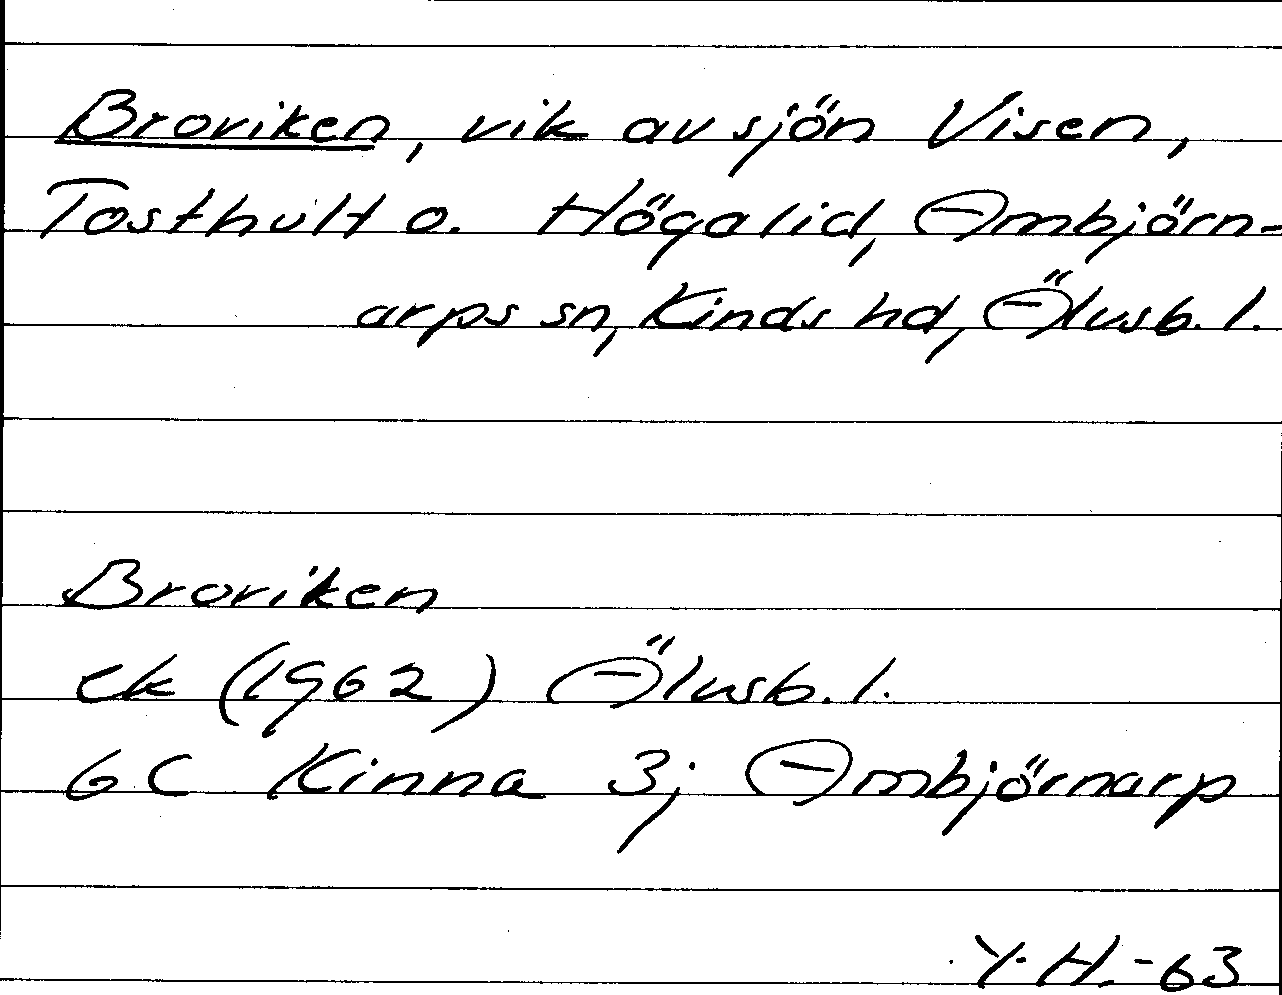 Broviken, vik av sjön Visen,
Tosthult o. Högalid, Ambjörn-
arps sn, Kinds hd, Älvsb. l.
Broviken
ek (1962) Älvsb. l.
6C Kinna 3j Ambjörnarp
Y.H.-63